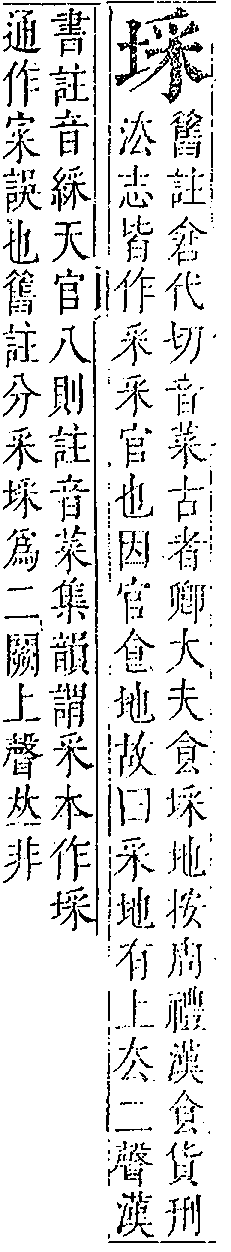 埰
舊註倉代切音菜古者卿大夫食埰地按周禮漢食貨刑
法志皆作采采官也因官食地故曰采地有上去二聲漢
書註音綵天官八則註音菜集韻謂采本作埰
通作寀誤也舊註分采埰為二闕上聲𠀤非